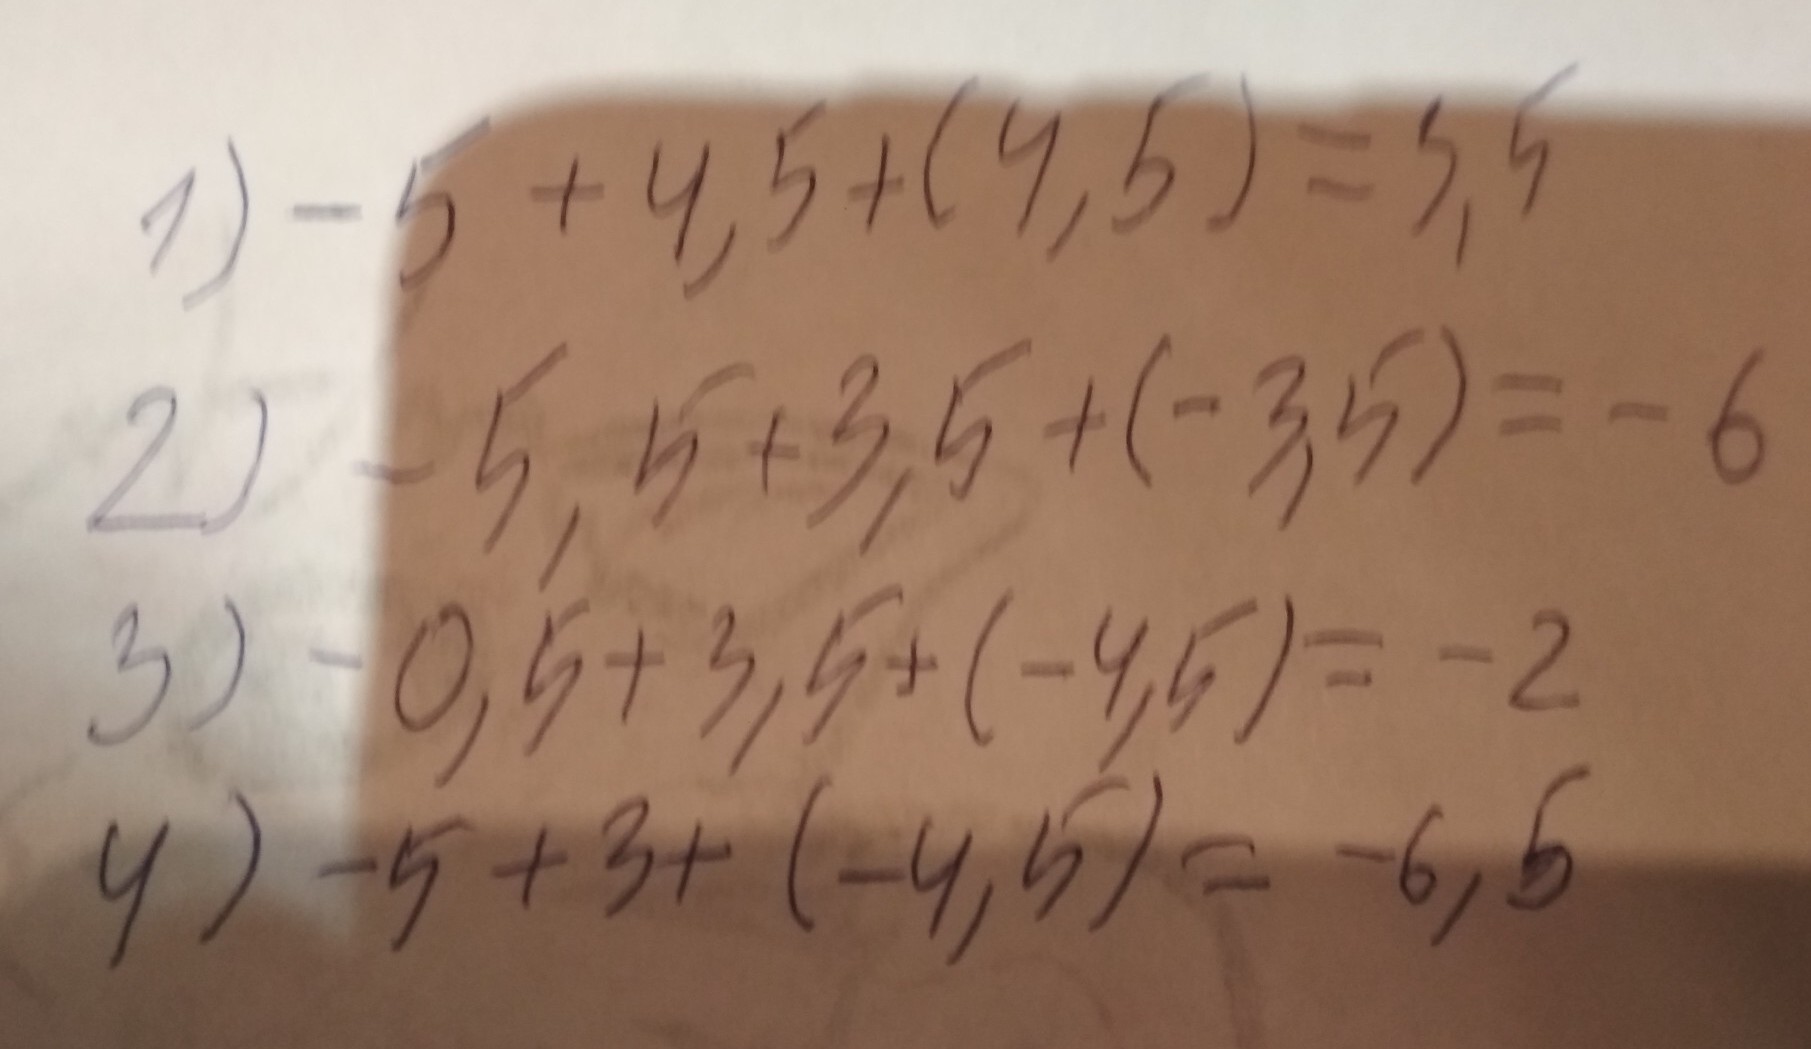 1) -5 + 4,5+(4,5)=5,5
2) -5,5+3,5+(-3,5)=-6
3) -0,5+3,5+(-4,5)=-2
4) -5+3+(-4,5)=-6,5